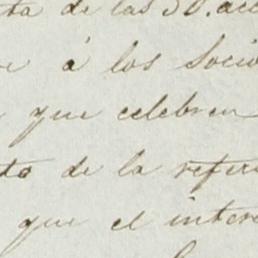 ta de las 50. acc
e á los Socio
que celebren
to de la refer
que el inter